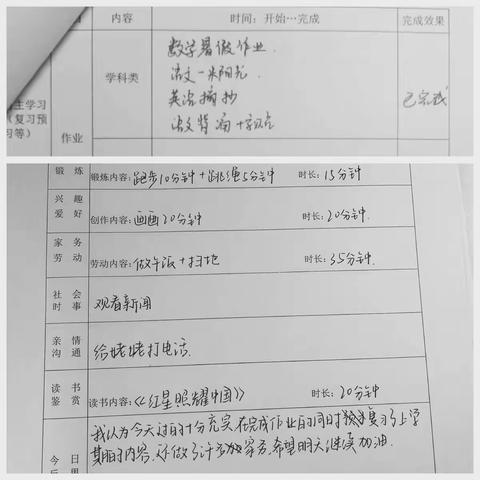 内容 时间：开始…完成 完成效果
数学暑假作业
学科类 语文一米阳光
英语摘抄 已完成
主学习
（复习预
习等） 作业 语文背诵+
锻炼 锻炼内容：跑步10分钟+跳绳5分钟 时长：15分钟
兴趣
爱好 创作内容：画画20分钟 时长：20分钟
家务
劳动 劳动内容：做午饭+扫地 时长：35分钟
社会
时事 观看新闻
亲情
沟通 给姥姥打电话
读书
鉴赏 读书内容：《红星照耀中国》 时长：20分钟
我认为今天过的十分充实，在完成作业的同时复习了上学
今日 期的内容，还做了许多家务，希望明天继续加油。